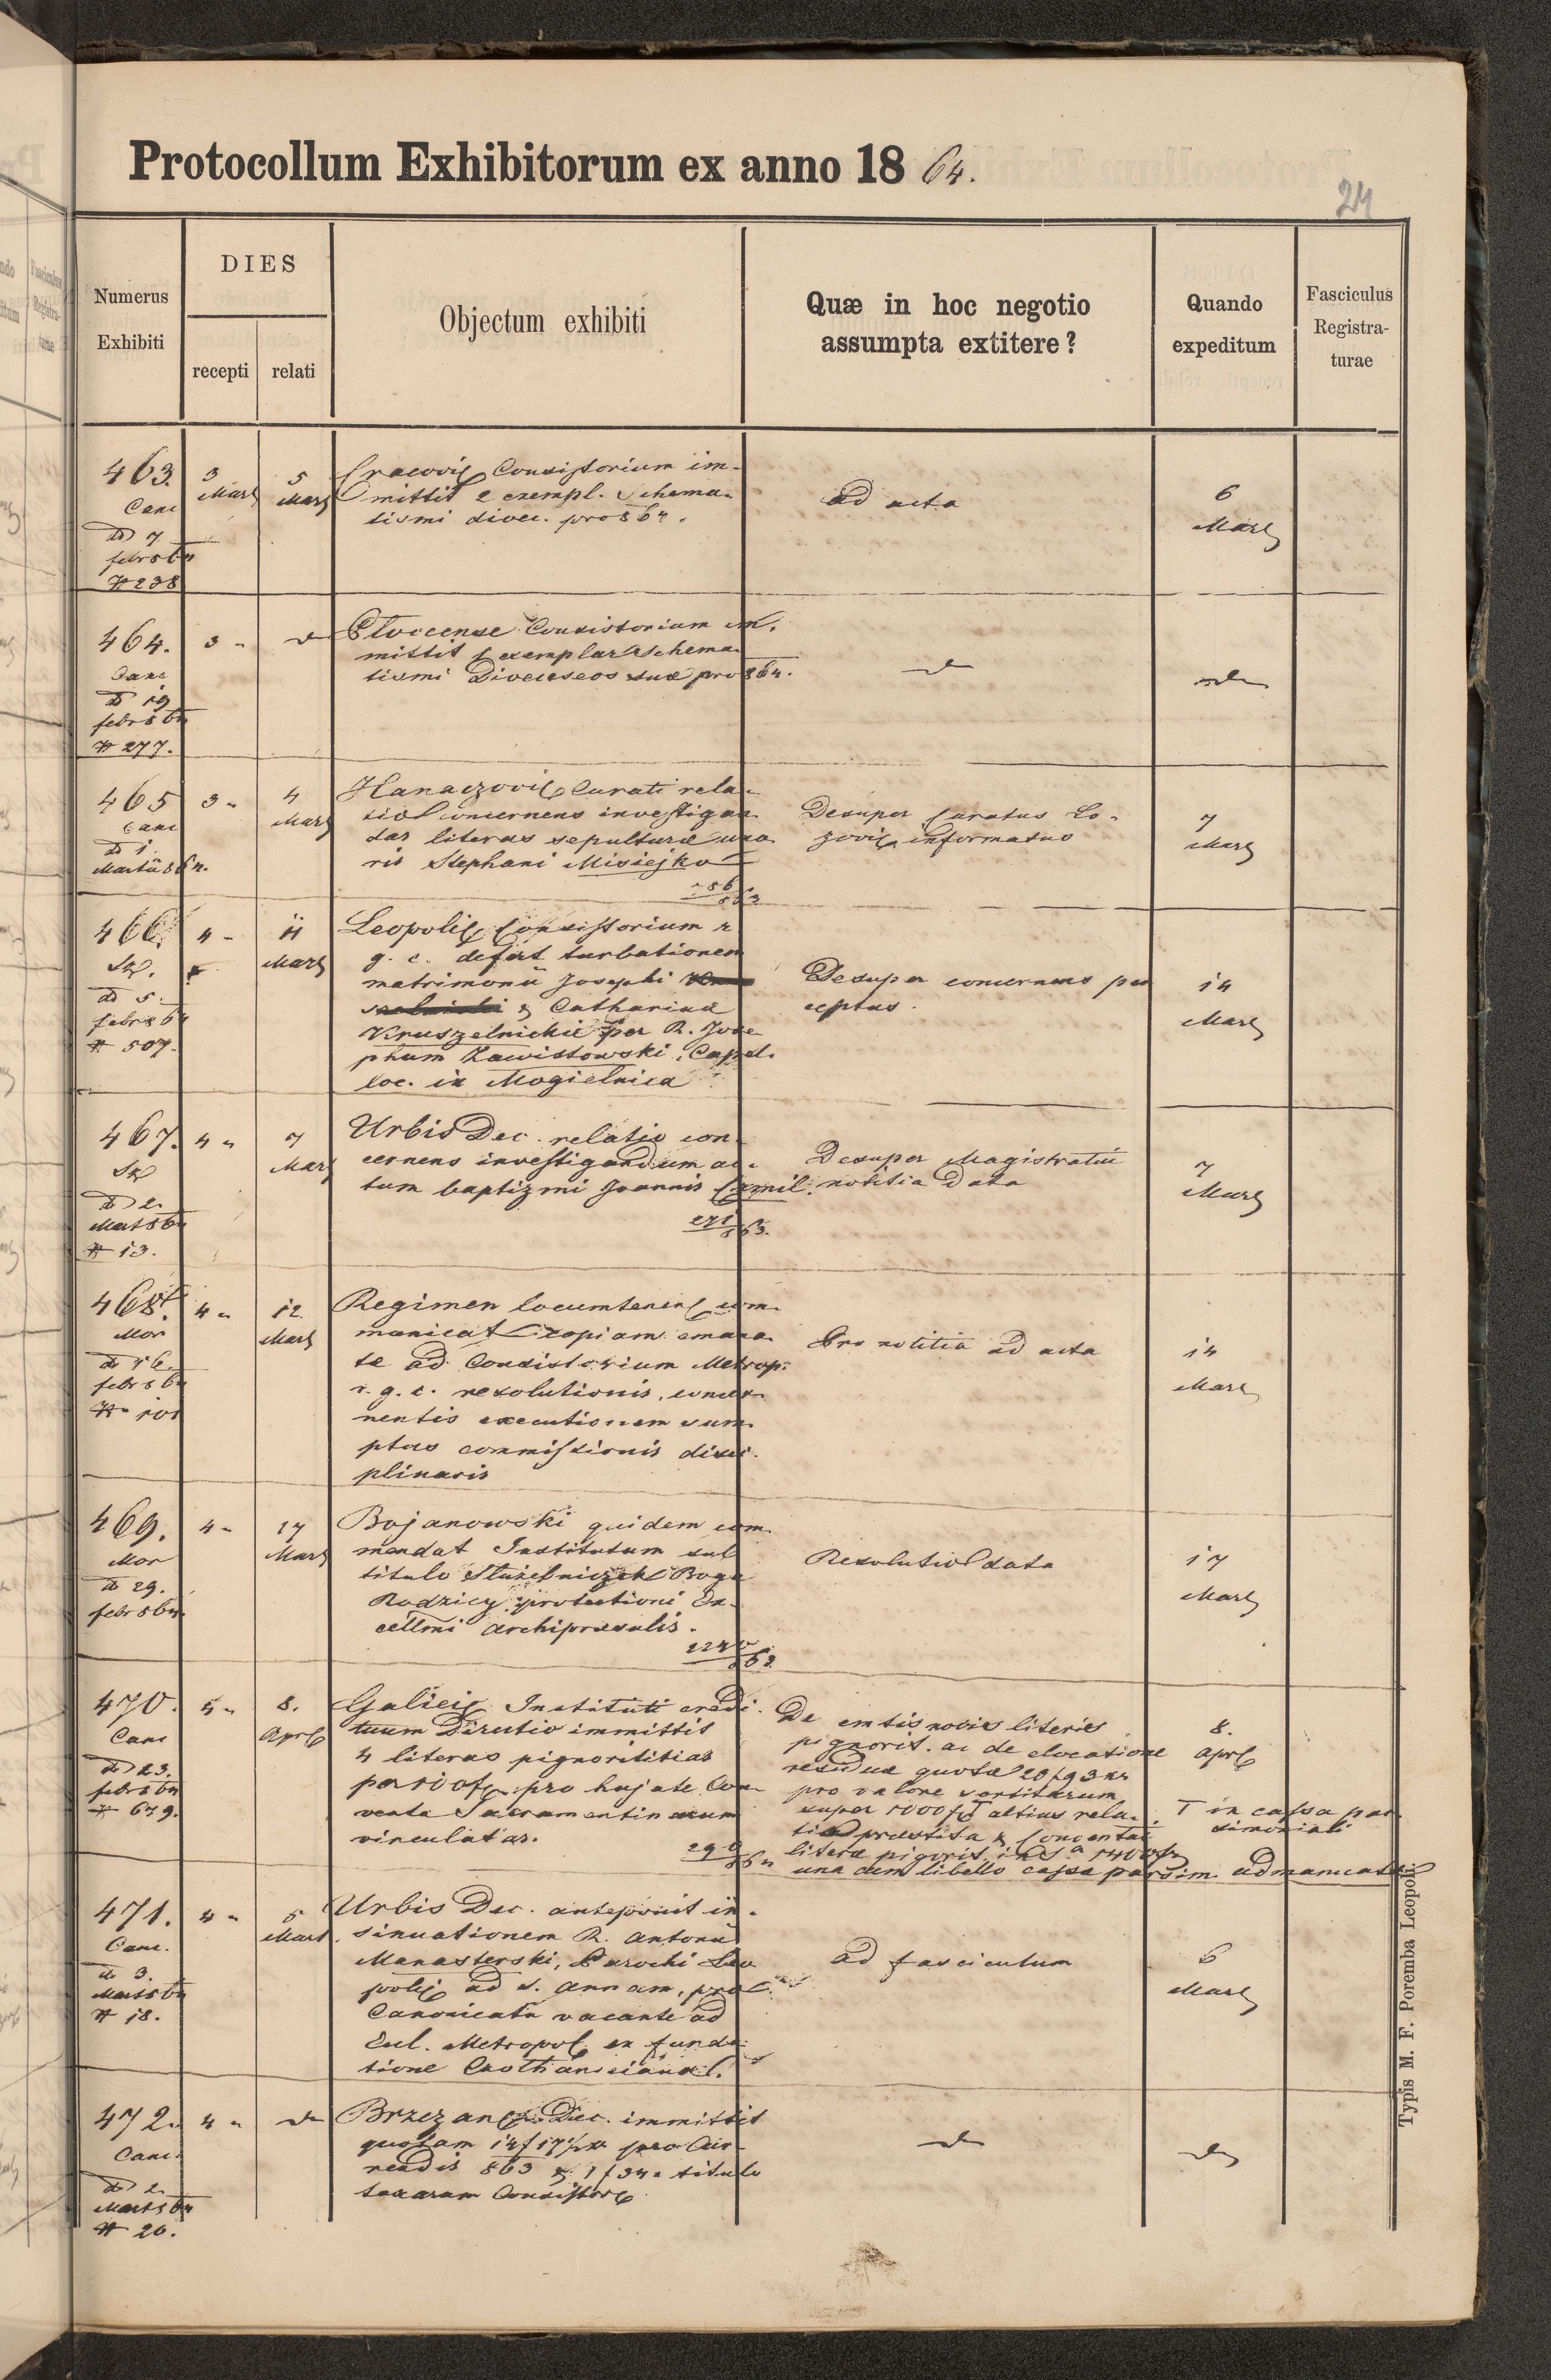 Protocollum Exhibitorum ex anno 18 64.
24
Numerus
Exhibiti
DIES
recepti
relati
Objectum exhibiti
Quæ in hoc negotio
assumpta extitere?
Quando
expeditum
Fasciculus
Registra-
turae
463.
Canc
dd 7
febr 864
# 238
3
Mart
5
Mart
Cracovie Consistorium im-
mittit 2 exempl. Schema-
tismi dioec. pro 864.
ad acta
6
Mart
464.
Canc
dd 19
febr 864
# 277.
3 "
Consistorium im.
mittit 1 exemplar Schema-
tismi Dioeceseos suæ pro 864.
465
Canc
dd 1
Martii 864.
3 "
4
Mart
Hanaczovie Curati rela-
tio concernens investigan-
das literas sepulturæ uxo-
ris Stephani Misiejko
863
Desuper Curatus Lo-
zovie informatus
7
Mart
466.
dd 5.
febr 864
# 507.
4 -
11
Mart
Leopolie Consistorium r
g. c. defert turbationem
matrimonii Josephi
& Catharinæ
Kruszelnickie per R. Jose-
phum Zawistowski, Capel.
loc. in Mogielnica
Desuper concernens per
ceptus.
14
Mart
467.
dd 2.
Mart 864
# 13.
4 "
7
Mart
Urbis Dec. relatio con-
cernens investigandum ac-
tum baptizmi Joannis Czmil.
271/863.
Desuper Magistratui
notitia data
7
Mart
468.
Mor
dd 16.
febr 864
# 101
4 "
12.
Mart
Regimen locumtenens com-
municat copiam emana-
te ad Consistorium Metrop.
r. g. c. resolutionis, concer-
nentis executionem sum-
ptus commissionis disci-
plinaris
Pro notitia ad acta
14
Mart
469.
Mor
dd 29.
febr 864.
4 "
17
Mart
Bojanowski quidem com-
mendat Institutum sub
titulo Służebniczek Boga
Rodzicy protectioni Ex-
cellmi archipraesulis.
Resolutio data
17
Mart
470.
Canc
dd 23.
febr 864
# 679.
5 "
8.
Apr
Galicie Instituti credi-
tuum Directio immittit
4 literas pignorititias
per 100f pro hujate Con-
ventu Sacramentinarum
vinculatas.
290/864
De emtis novis literis
pignorit. ac de elocatione
residuæ quotæ 20f 93 kr
pro valore sortitarum
super 1000f T altius rela-
tio præstita & Conventui
literæ pignorit.
una cum libello cassæ parsim. admanuatæ
T in cassa par-
simoniali
8.
apr
471.
Canc.
dd 3.
Mart 864
# 18.
4 "
5
Mart.
Urbis Dec. anteponit in-
sinuationem R. Antonii
Manasterski, Parochi Leo
polie ad S. Annam, pro
Canonicatu vacante ad
Eccl. Metropol ex funda-
tione
ad fasciculum
6
Mart
472.
Canc.
dd 2
Mart 864
# 20.
4 "
Brzezan Dec. immittit
quotam 14f 17½ xr pro Cur-
rendis 863 & 1f 34 " titulo
taxarum Consistor
Typis M. F. Poremba Leopoli.